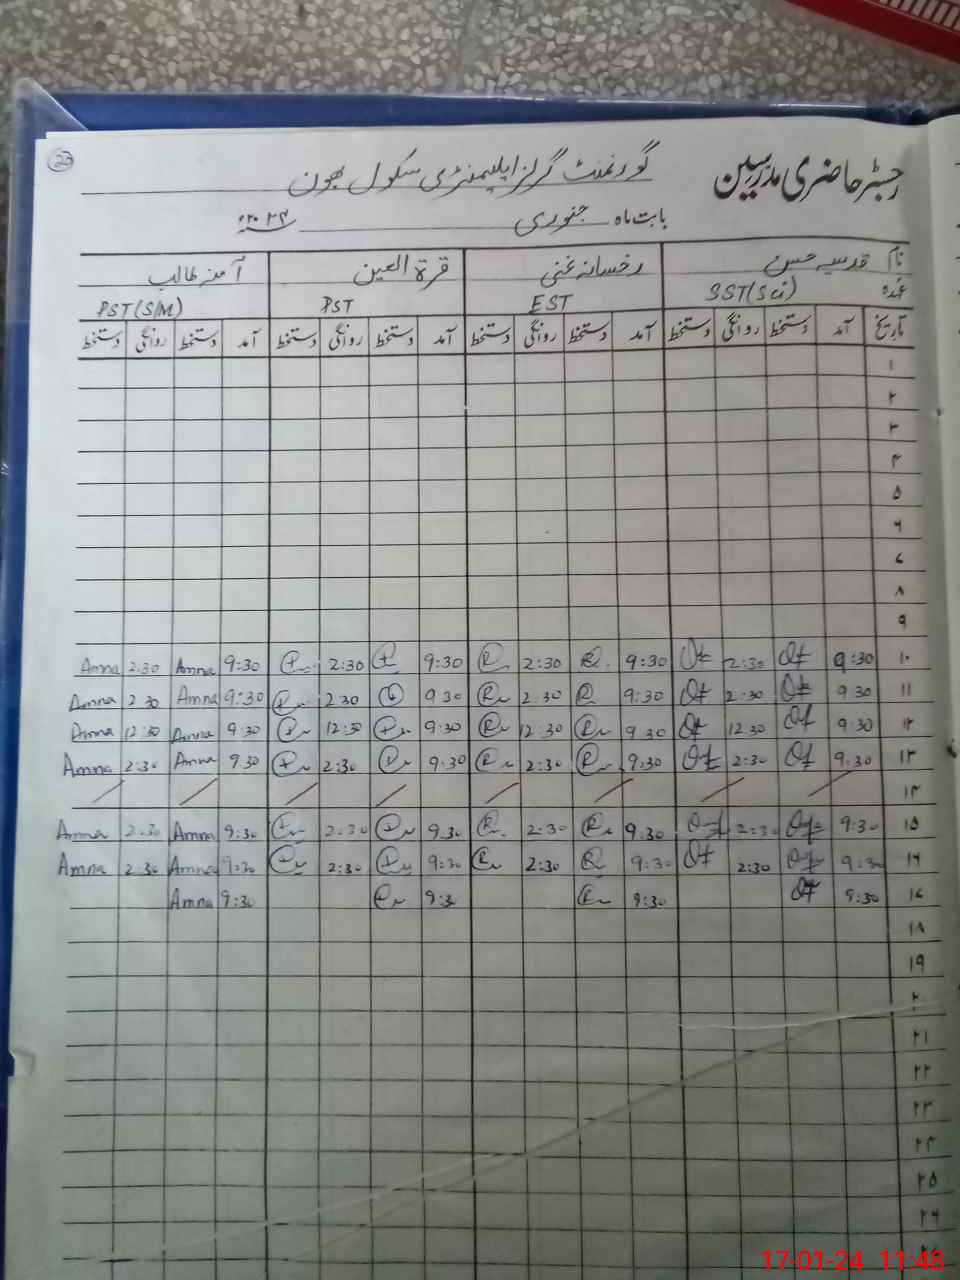 23
رجسٹر حاضری مدرسین گورنمنٹ گرلز ایلیمنٹری سکول بھون
بابت ماہ جنوری ۲۰۲۴
نام قدسیہ حسن رخسانہ غنی قرۃ العین آمنہ طالب
عہدہ SST(Sci) EST PST PST(S/M)
تاریخ آمد دستخط روانگی دستخط آمد دستخط روانگی دستخط آمد دستخط روانگی دستخط آمد دستخط روانگی دستخط
۱
۲
۳
۴
۵
۶
۷
۸
۹
۱۰ 9:30 2:30 9:30 2:30 9:30 2:30 9:30 Amna 2:30 Amna
۱۱ 9 30 2:30 9:30 2:30 9 30 2 30 9:30 Amna 2 30 Amna
۱۲ 9 30 12 30 9 30 12:30 9:30 12:30 9 30 Amna 12:30 Amna
۱۳ 9:30 2:30 9:30 2:30 9:30 2:30 9 30 Amna 2:30 Amna
۱۴
۱۵ 9:30 2:30 9:30 2:30 9:30 2:30 9:30 Amna 2:30 Amna
۱۶ 9:30 2:30 9:30 2:30 9:30 2:30 9:30 Amna 2:30 Amna
۱۷ 9:30 9:30 9:30 9:30 Amna
۱۸
۱۹
۲۰
۲۱
۲۲
۲۳
۲۴
۲۵
۲۶
17-01-24 11:48